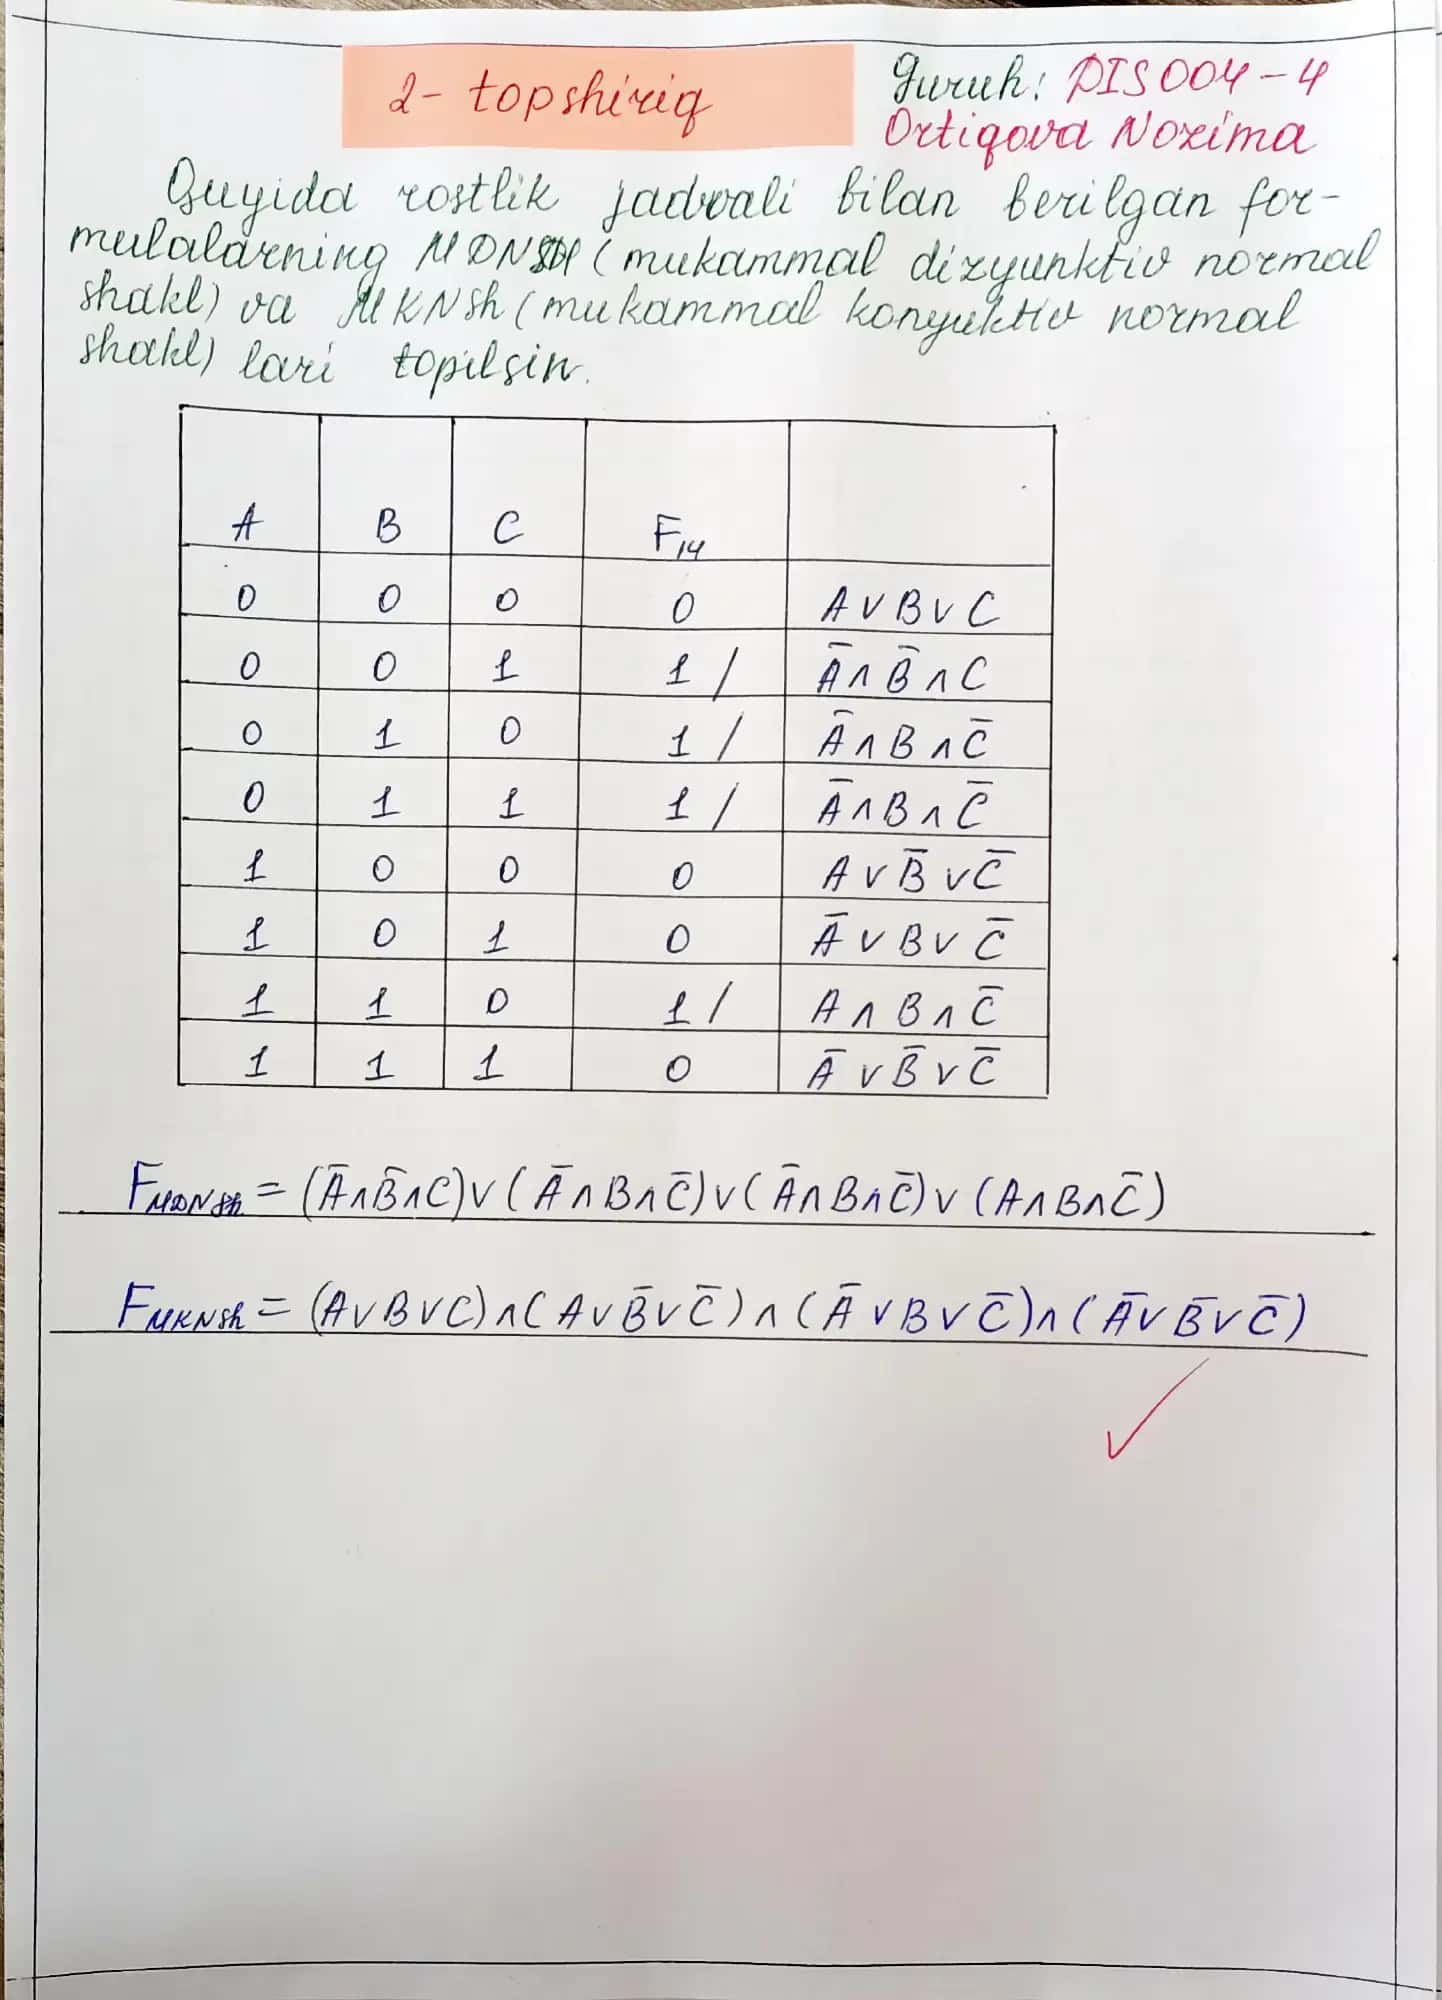 2- topshiriq
Guruh: DIS004-4
Ortiqova Nozima
Quyida rostlik jadvali bilan berilgan for-
mulalarning MDNSH (mukammal dizyunktiv normal
shakl) va MKNSh (mukammal konyuktiv normal
shakl) lari topilsin.
A B C F₁₄
0 0 0 0 A∨B∨C
0 0 1 1/ A̅∧B̅∧C
0 1 0 1/ A̅∧B∧C̅
0 1 1 1/ A̅∧B∧C̅
1 0 0 0 A∨B̅∨C̅
1 0 1 0 A̅∨B∨C̅
1 1 0 1/ A∧B∧C̅
1 1 1 0 A̅∨B̅∨C̅
F MDNSh = (A̅∧B̅∧C)∨(A̅∧B∧C̅)∨(A̅∧B∧C̅)∨(A∧B∧C̅)
F MKNSh = (A∨B∨C)∧(A∨B̅∨C̅)∧(A̅∨B∨C̅)∧(A̅∨B̅∨C̅)